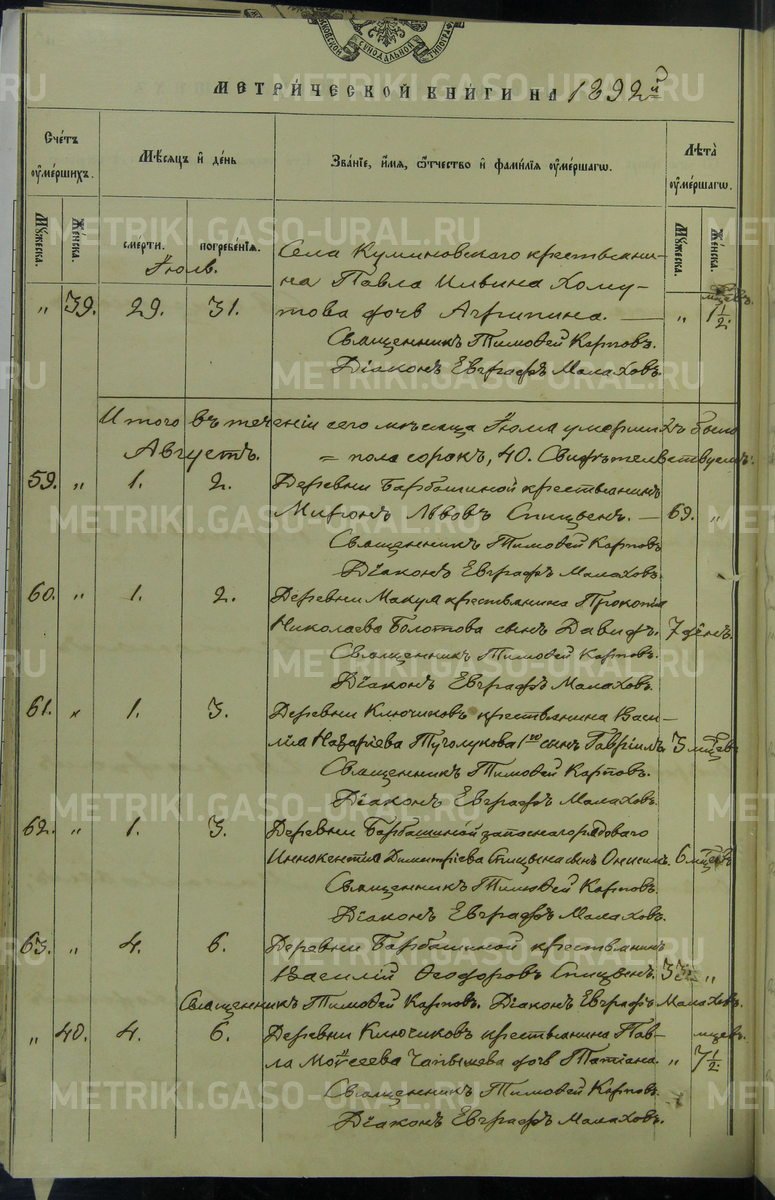 МЕТРИ́ЧЕСКОЙ КНИ́ГИ НА 1892й
Сче́тъ ᲂу҆ме́ршихъ.
Мѣ́сяцъ и҆ де́нь
Зва́нїе, и҆́мя, ѻ҆́тчество и҆ фами́лїя ᲂу҆ме́ршагѡ.
Лѣ́та ᲂу҆ме́ршагѡ.
Мꙋ́жеска.
Же́нска.
сме́рти.
погребе́нїя.
Мꙋ́жеска.
Же́нска.
Іюль.
Села Куминовскаго крестьяни-
на Павла Ильина Хому-
мцев.
„ 39. 29. 31. това дочь Агрипина. — „ 1½.
Священникъ Тимоѳей Карповъ.
Діаконъ Евграфъ Малаховъ.
Итого въ теченіи сего мѣсяца Іюля умершихъ было
Августъ.
= пола сорокъ, 40. Свидѣтельствуемъ:
59. „ 1. 2. Деревни Барбашиной крестьянинъ
Миронъ Львовъ Спицынъ. — 69. „
Священникъ Тимоѳей Карповъ
Діаконъ Евграфъ Малаховъ.
60. „ 1. 2. Деревни Макуя крестьянина Прокопія
Николаева Болотова сынъ Давидъ. 7 дён.
Священникъ Тимоѳей Карповъ.
Діаконъ Евграфъ Малаховъ.
61. „ 1. 3. Деревни Ключиковъ крестьянина Васи-
лія Назаріева Туголукова 1го сынъ Гавріилъ 3 мцев
Священникъ Тимоѳей Карповъ.
Діаконъ Евграфъ Малаховъ.
62. „ 1. 3. Деревни Барбашиной запаснаго рядоваго
Иннокентія Димитріева Спицына сынъ Онисимъ. 6 мцев
Священникъ Тимоѳей Карповъ.
Діаконъ Евграфъ Малаховъ.
63. „ 4. 6. Деревни Барбашиной крестьянинъ
Василій Ѳеодоровъ Спицынъ. 33. „
Священникъ Тимоѳей Карповъ. Діаконъ Евграфъ Малаховъ.
„ 40. 4. 6. Деревни Ключиковъ крестьянина Пав- мцев.
ла Моѵсеева Чапышева дочь Татіана. „ 7½.
Священникъ Тимоѳей Карповъ.
Діаконъ Евграфъ Малаховъ.
METRIKI.GASO-URAL.RU